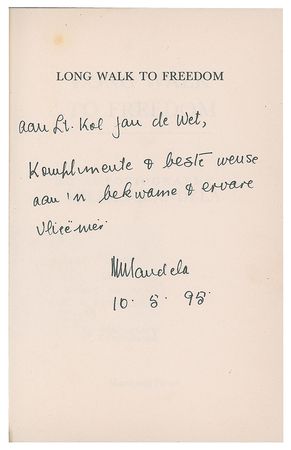 LONG WALK TO FREEDOM
aan Lt. Kol Jan de Wet,
Komplimente & beste wense
aan 'n bekwame & ervare
vlieënier
NMandela
10. 5. 95.